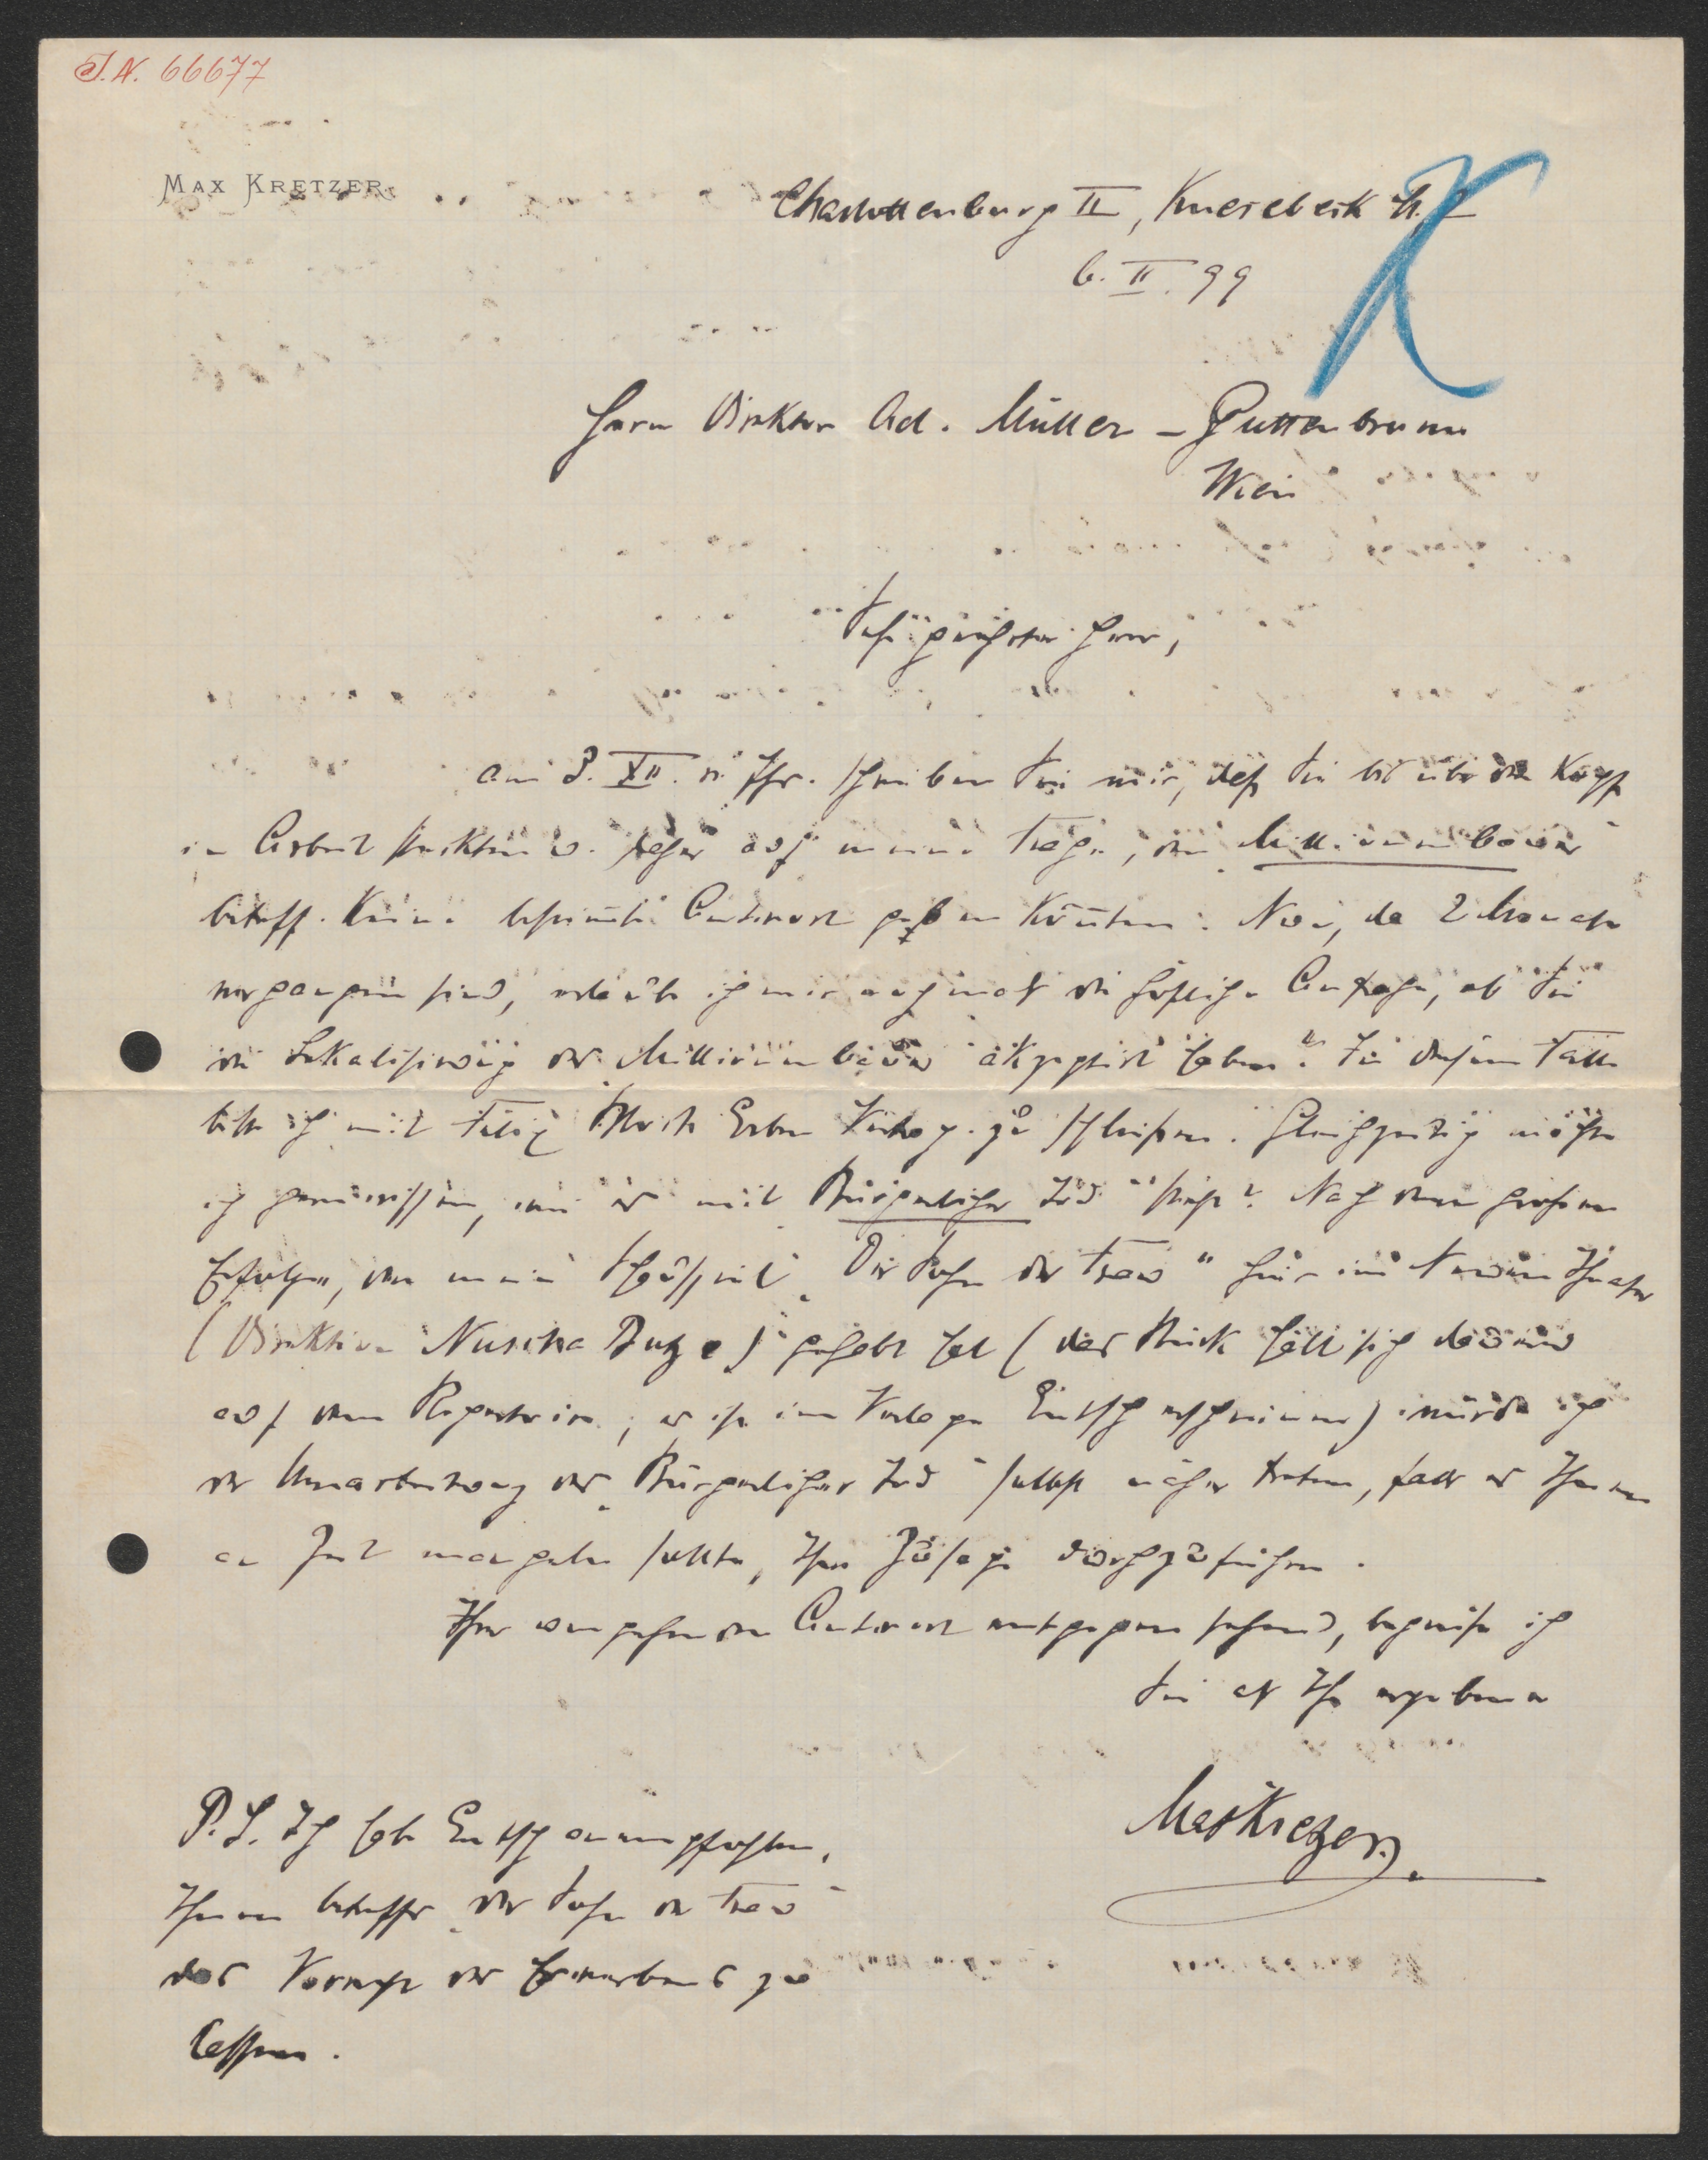 J. N. 66677
MAX KRETZER.
Charlottenburg II, Knesebeck St. 2
6. II. 99
Herrn Direktor Ad. Müller-Guttenbrunn
Wien
Sehr geehrter Herr,
am 3. XII. v. Jhr. schrieben Sie mir, daß Sie bis über den Kopf
in Arbeit steckten u. daher auf meine Frage, den „Millionenbauer"
betreff. keine bestimmte Antwort geben könnten. Nun, da 2 Monate
vergangen sind, erlaube ich mir nochmals die höfliche Anfrage, ob Sie
die Lokalisirung des „Millionenbauer" akzeptirt haben? In diesem Falle
bitte ich mit Felix Bloch Erben Vertrag zu schließen. Gleichzeitig möchte
ich gerne wissen, wie es mit „Bürgerlicher Tod" steht? Nach dem großen
Erfolge, den mein Schauspiel „Der Sohn der Frau" hier im Neuen Theater
(Direktion Nuscha Butze) gehabt hat (das Stück hält sich dauernd
auf dem Repertoire, es ist im Verlage Entsch erschienen) würde ich
der Umarbeitung des „Bürgerlicher Tod" selbst näher treten, falls es Ihnen
an Zeit mangeln sollte, Ihre Zusage durchzuführen.
Ihrer umgehenden Antwort entgegen sehend, begrüße ich
Sie als Ihr ergebener
Max Kretzer.
P. S. Ich habe Entsch anempfohlen,
Ihnen betreffs „Der Sohn der Frau"
das Vorrecht des Erwerbens zu
lassen.